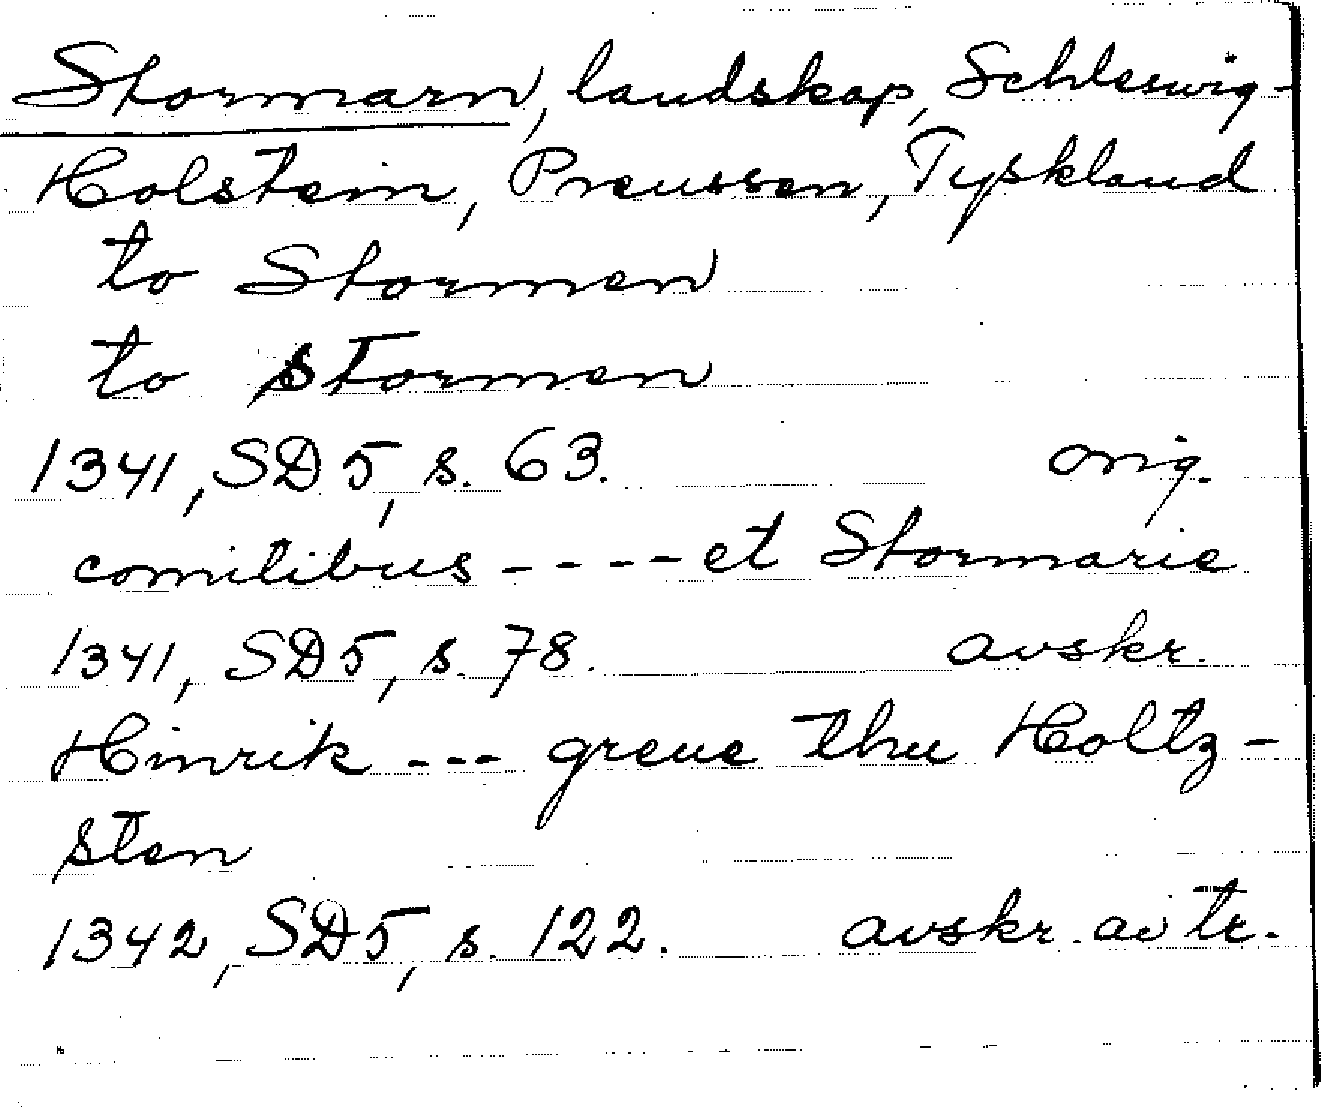 Stormarn, landskap, Schleswig-
Holstein, Preussen, Tyskland
to Stormen
to Stormen
1341, SD5, s. 63. orig.
comitibus ---- et Stormarie
1341, SD5, s. 78. avskr.
Hinrik --- greue thu Holtz-
sten
1342, SD5, s. 122. avskr. av tr.